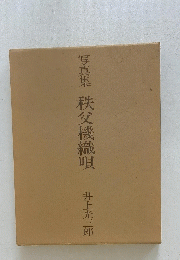 写真集
秩父機織唄
井上光三郎